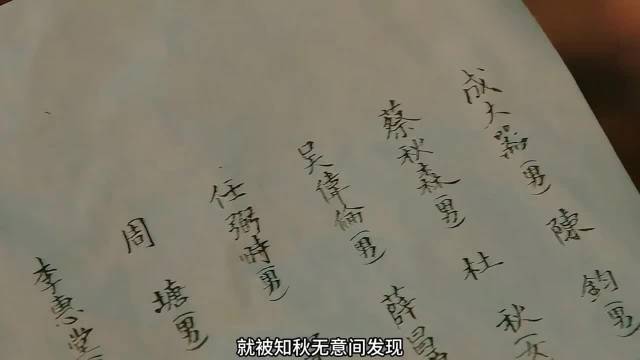 成大器(男) 陳鈞(男)
蔡秋森(男) 杜秋(女
吳偉倫(男) 薛昌
任弼時(男)
周塘(男)
李惠堂(
就被知秋无意间发现